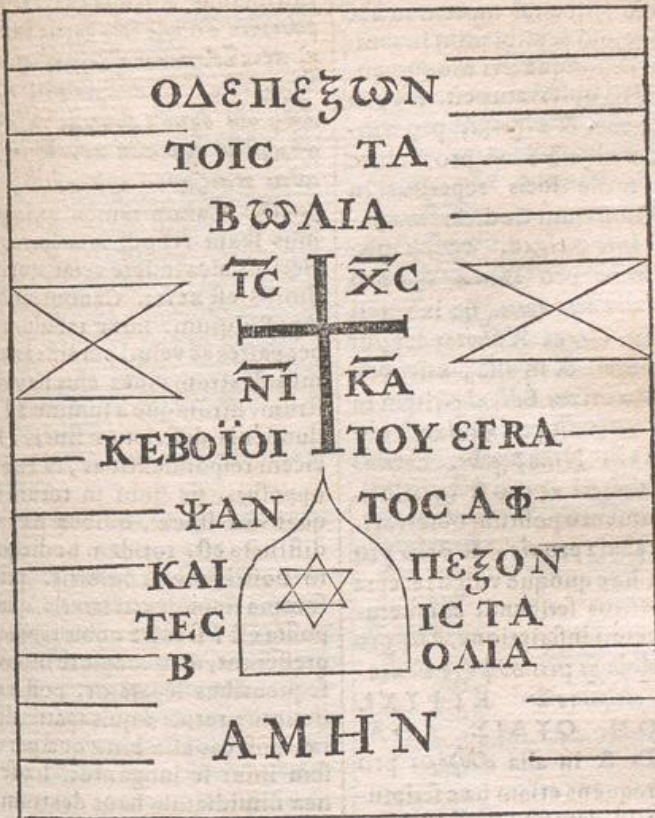 ΟΔΕΠΕξѠΝ
ΤΟΙC ΤΑ
ΒѠΛΙΑ
ΙC ΧC
ΝΙ ΚΑ
ΚΕΒΟΪΟΙ ΤΟΥ ΕΓRΑ
ΨΑΝ ΤΟC ΑΦ
ΚΑΙ ΠΕξΟΝ
ΤΕC ΙC ΤΑ
Β ΟΛΙΑ
ΑΜΗΝ